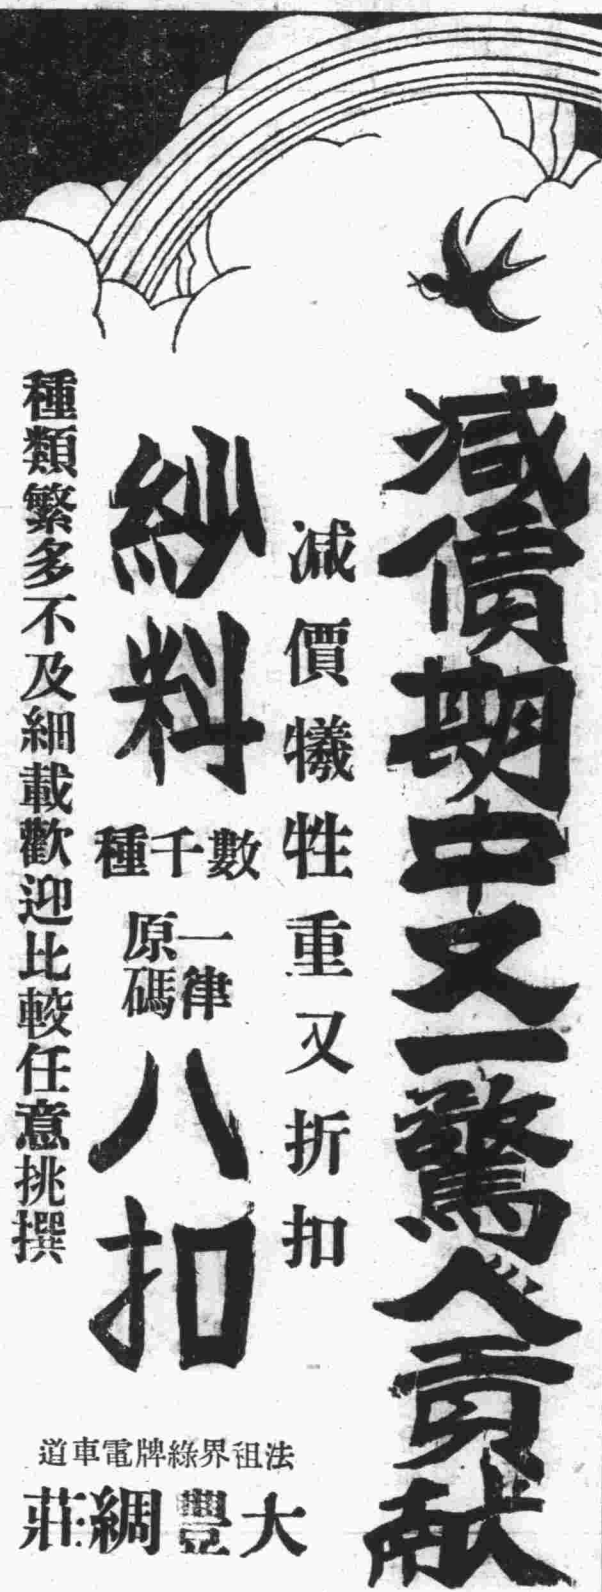 减價期中又一驚人貢献
减價犧牲重又折扣
紗料
數千種
一律
原碼
八扣
種類繁多不及細載歡迎比較任意挑撰
法租界綠牌電車道
大豐綢莊